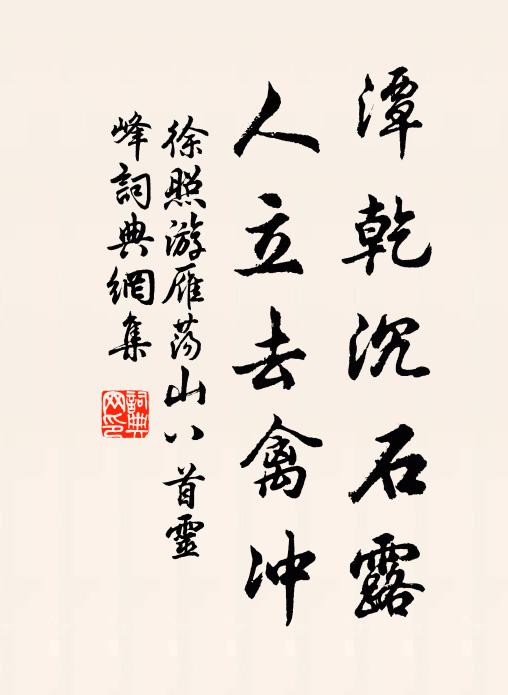 潭乾沉石露
人立去禽冲
徐照游雁荡山八首靈
峰詞典網集
詞典网印